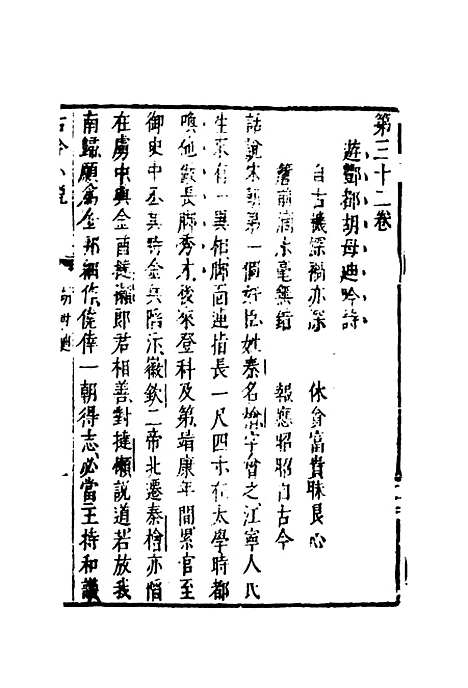 第三十二卷
遊酆都胡母迪吟詩
自古機深禍亦深　休貪富貴昧良心
簷前滴水毫無錯　報應昭昭自古今
話說宋朝第一個奸臣姓秦名檜字會之江寧人氏
生來有一異相脚面連指長一尺四寸在太學時都
喚他做長脚秀才後來登科及第靖康年間累官至
御史中丞其時金兵陷汴徽欽二帝北遷秦檜亦陷
在虜中與金酋撻懶郎君相善對撻懶說道若放我
南歸願爲金邦細作僥倖一朝得志必當主持和議
古今小說
胡母迪
一